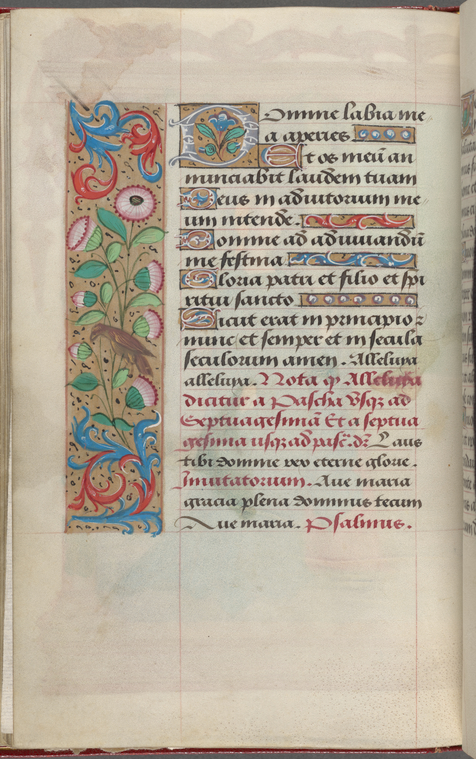 Domine labia me
a aperies
Et os meū an
nunciabit laudem tuam
Deus in adiutorium me
um intende.
Domine ad adiuuandū
me festina
Gloria patri et filio et spi
ritui sancto
Sicut erat in principio ⁊
nunc et semper et in secula
seculorum amen. Alleluya
alleluya. Nota ꝙ Alleluya
dicitur a Pascha Vsqꝫ ad
Septuagesimā Et a septua
gesima usqꝫ ad pasč. dꝫ Laus
tibi domine rex eterne glorie.
Inuitatorium. Aue maria
gracia plena dominus tecum
Aue maria. Psalmus.